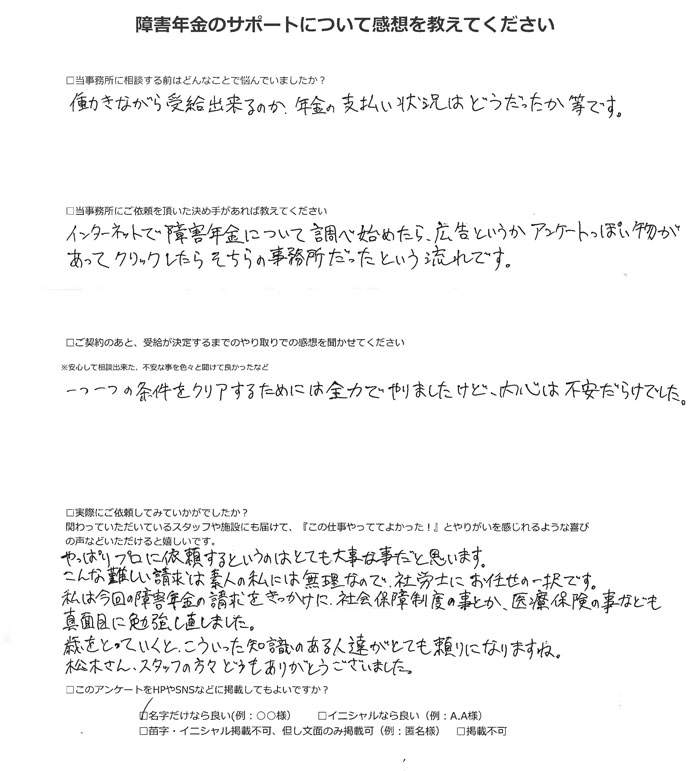 障害年金のサポートについて感想を教えてください
□当事務所に相談する前はどんなことで悩んでいましたか？
働きながら受給出来るのか、年金の支払い状況はどうだったか等です。
□当事務所にご依頼を頂いた決め手があれば教えてください
インターネットで障害年金について調べ始めたら、広告というかアンケートっぽい物が
あってクリックしたらそちらの事務所だったという流れです。
□ご契約のあと、受給が決定するまでのやり取りでの感想を聞かせてください
※安心して相談出来た、不安な事を色々と聞けて良かったなど
一つ一つの条件をクリアするためには全力でやりましたけど、内心は不安だらけでした。
□実際にご依頼してみていかがでしたか？
関わっていただいているスタッフや施設にも届けて、『この仕事やっててよかった！』とやりがいを感じれるような喜び
の声などいただけると嬉しいです。
やっぱりプロに依頼するというのはとても大事な事だと思います。
こんな難しい請求は素人の私には無理なので、社労士にお任せの一択です。
私は今回の障害年金の請求をきっかけに、社会保障制度の事とか、医療保険の事なども
真面目に勉強し直しました。
歳をとっていくと、こういった知識のある人達がとても頼りになりますね。
松木さん、スタッフの方々どうもありがとうございました。
□このアンケートをHPやSNSなどに掲載してもよいですか？
□名字だけなら良い(例：○○様) □イニシャルなら良い（例：A.A様）
□苗字・イニシャル掲載不可、但し文面のみ掲載可（例：匿名様） □掲載不可